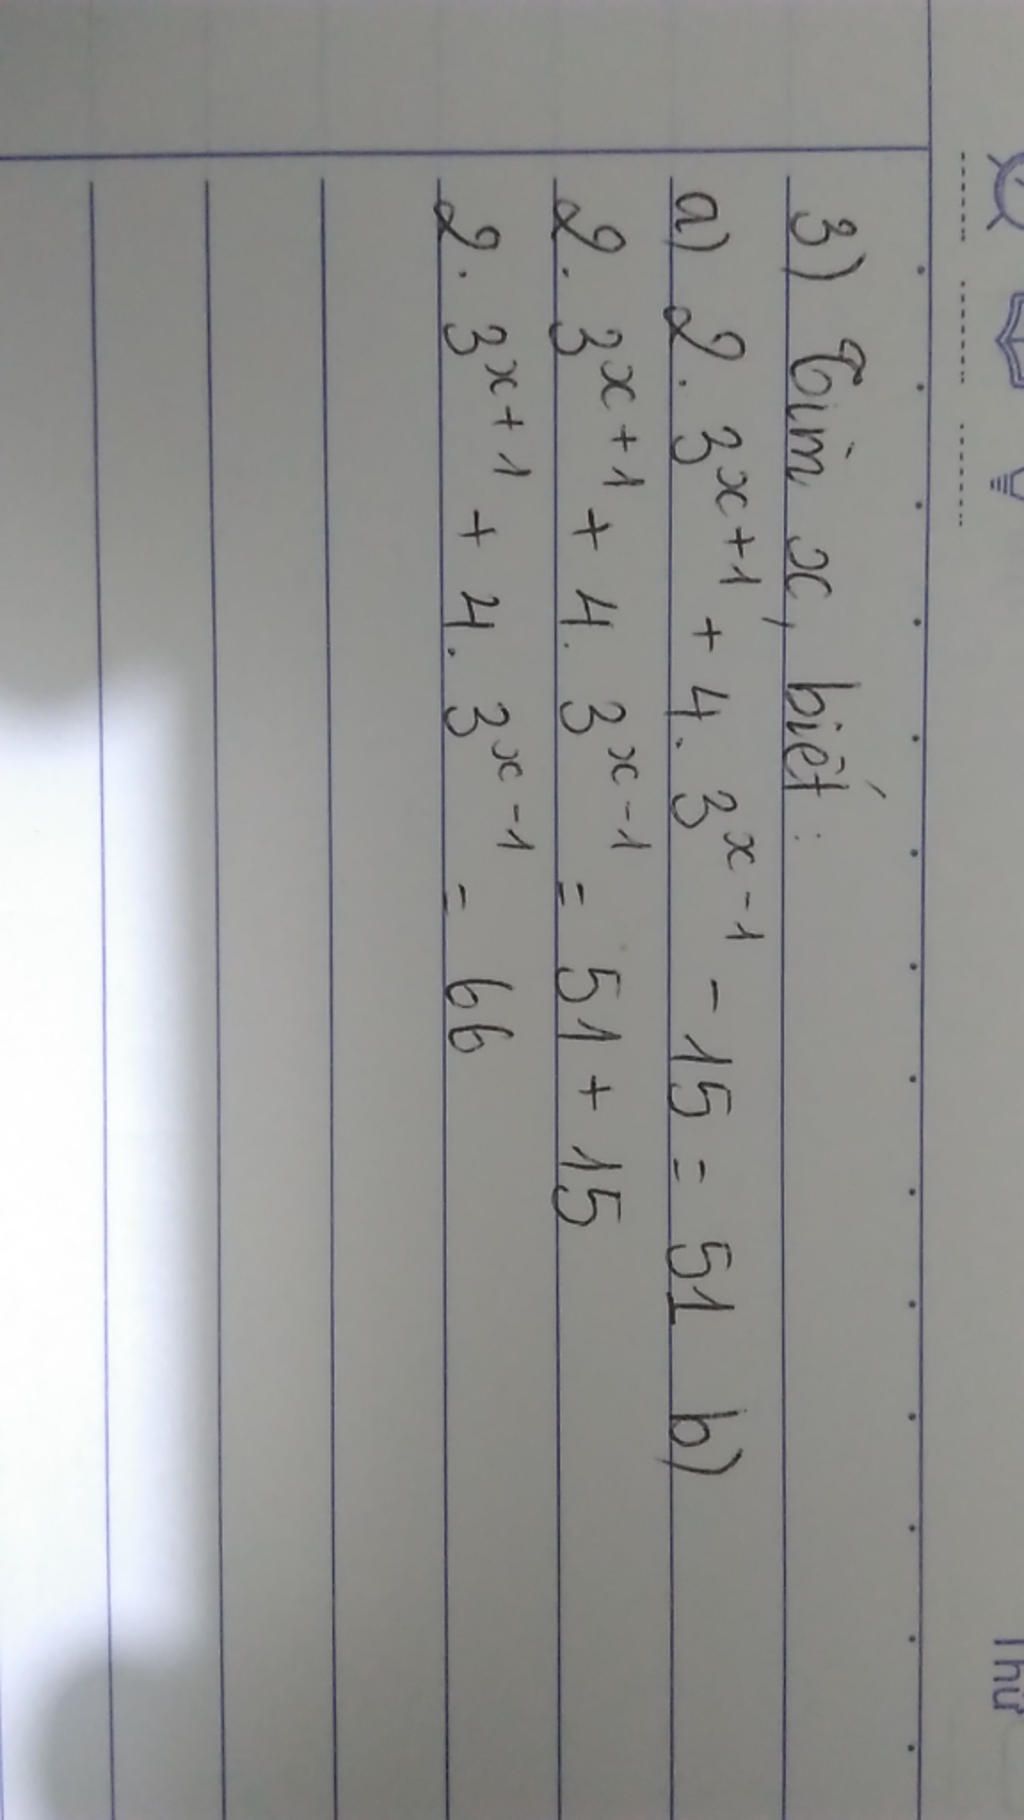 Thứ
3) Tìm x, biết:
a) 2 . 3^{x+1} + 4 . 3^{x-1} - 15 = 51 b)
2 . 3^{x+1} + 4 . 3^{x-1} = 51 + 15
2 . 3^{x+1} + 4 . 3^{x-1} = 66